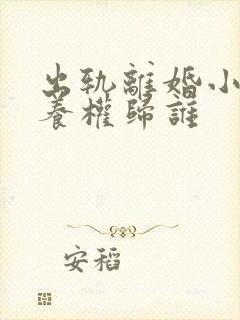 出轨離婚小
養權歸誰
安稻